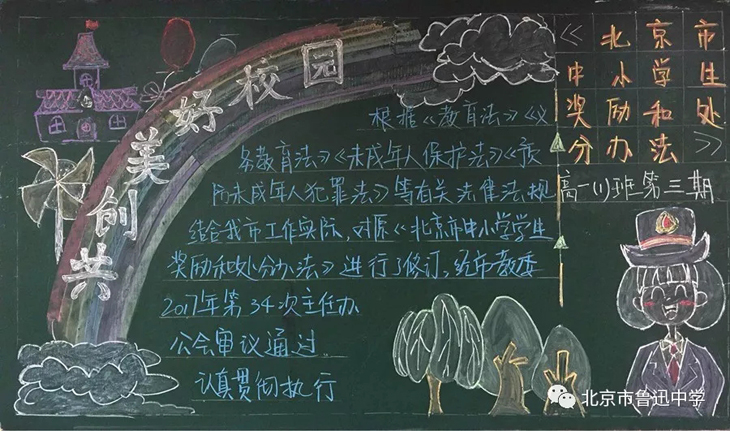 共创美好校园
《北京市
中小学生
奖励和处
分办法》
高一(1)班第三期
根据《教育法》《义
务教育法》《未成年人保护法》《预
防未成年人犯罪法》等有关法律法规
结合我市工作实际,对原《北京市中小学学生
奖励和处分办法》进行了修订,经市教委
2017年第34次主任办
公会审议通过。
认真贯彻执行
北京市鲁迅中学